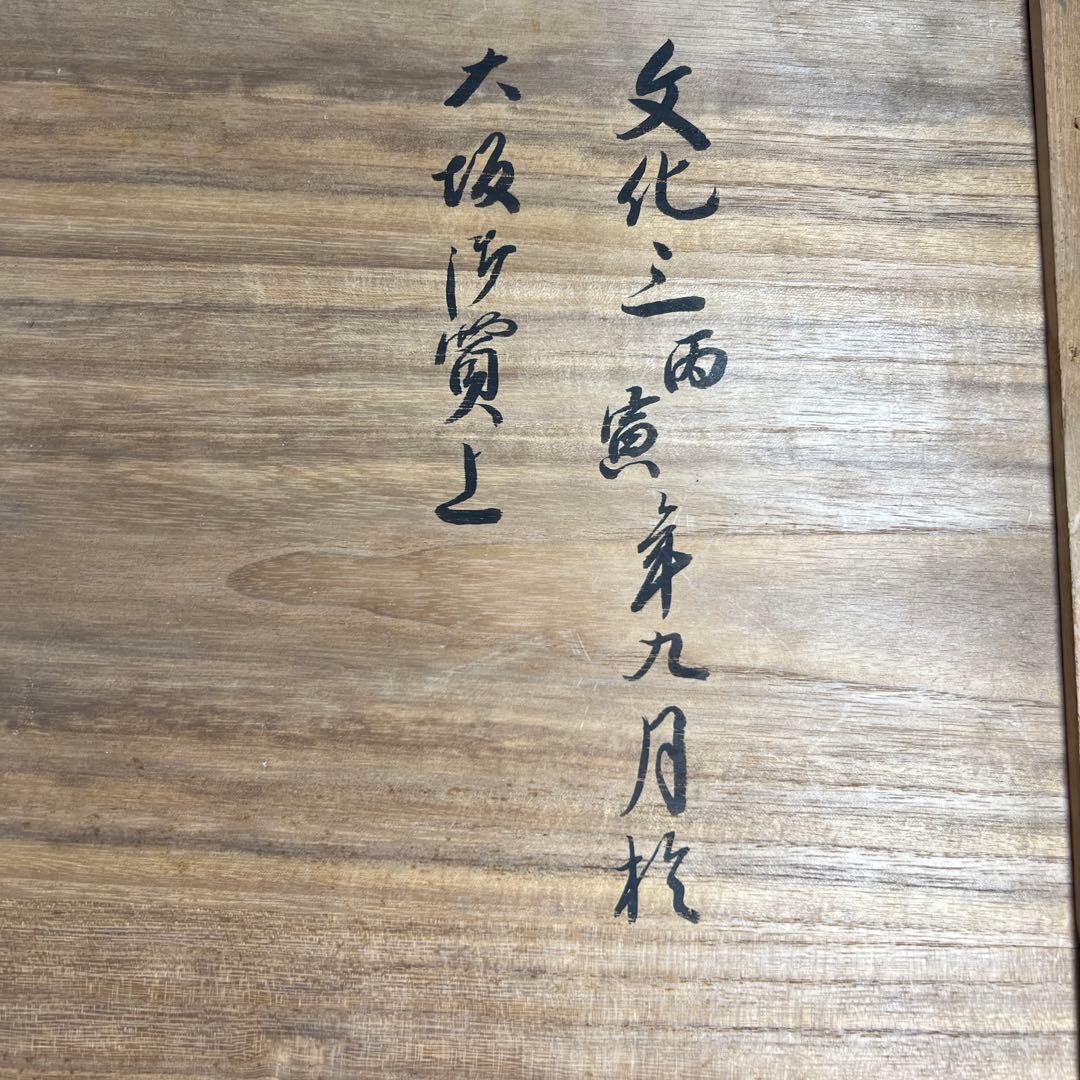 文化三丙寅年九月於
大坂御買上